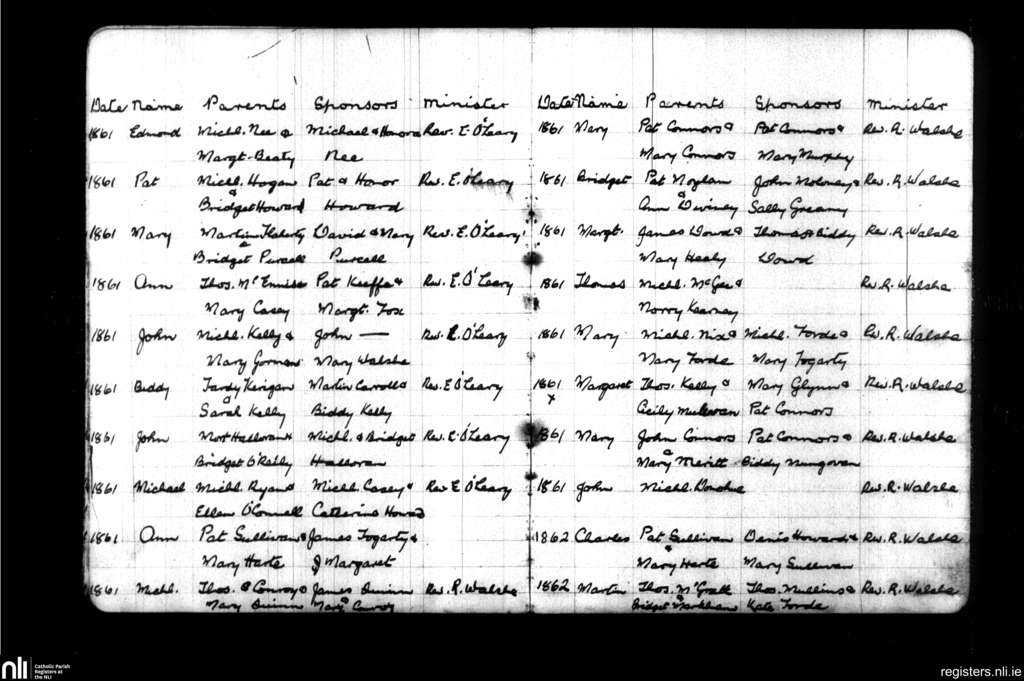 Date Name Parents Sponsors Minister
1861 Edmond Michl. Nee & Michael & Honora Rev. E. O'Leary
Margt. Beaty Nee
1861 Pat Michl. Hogan Pat & Honor Rev. E. O'Leary
& Bridget Howard Howard
1861 Mary Martin Flaherty David & Mary Rev. E. O'Leary
& Bridget Purcell Purcell
1861 Ann Thos. McEnnis Pat Keaffe & Rev. E. O'Leary
Mary Casey Margt. Fox
1861 John Michl. Kelly & John — Rev. E. O'Leary
Mary Gorman Mary Walshe
1861 Biddy Fardy Kerigan Martin Carroll & Rev. E O'Leary
& Sarah Kelly Biddy Kelly
1861 John Mort Halloran & Michl. & Bridget Rev. E. O'Leary
Bridget O'Reily Halloran
1861 Michael Michl. Ryan & Michl. Casey & Rev E O'Leary
Ellen O'Connell Catherine Howard
1861 Ann Pat Sullivan & James Fogarty &
Mary Harte Margaret
1861 Michl. Thos. Conroy & James Quinn Rev. R. Walshe
Mary Quinn & Mary Conroy
Date Name Parents Sponsors Minister
1861 Mary Pat Connors & Pat Connors & Rev. R. Walshe
Mary Connors Mary Murphy
1861 Bridget Pat Noylan John Moloney & Rev. R. Walshe
& Ann Deviney Sally Greany
1861 Margt. James Dowd & Thomas & Biddy Rev. R. Walshe
Mary Healy Dowd
1861 Thomas Michl. McGee & Rev. R. Walshe
Norry Kearney
1861 Mary Michl. Nix & Michl. Forde & Rev. R. Walshe
Mary Forde Mary Fogarty
1861 Margaret Thos. Kelly & Mary Glynn & Rev. R. Walshe
x Cicily Pat Connors
1861 Mary John Connors Pat Connors & Rev. R. Walshe
& Mary Meritt Biddy Mungovan
1861 John Michl. Donohue Rev. R. Walshe
1862 Charles Pat Sullivan Denis Howard & Rev. R. Walshe
& Mary Harte Mary Sullivan
1862 Martin Thos. McGrath Thos. Mullins & Rev. R. Walshe
& Bridget Markham Kate Forde
nli Catholic Parish
Registers at
the NLI
registers.nli.ie